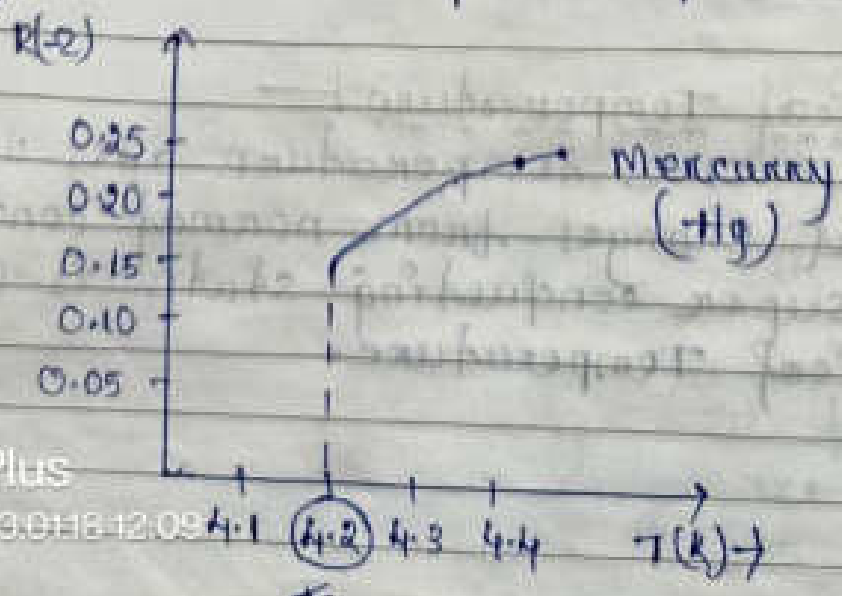 R(Ω)
0.25
0.20
0.15
0.10
0.05
Mercurry
(Hg)
4.1 4.2 4.3 4.4 T(K)→
Plus